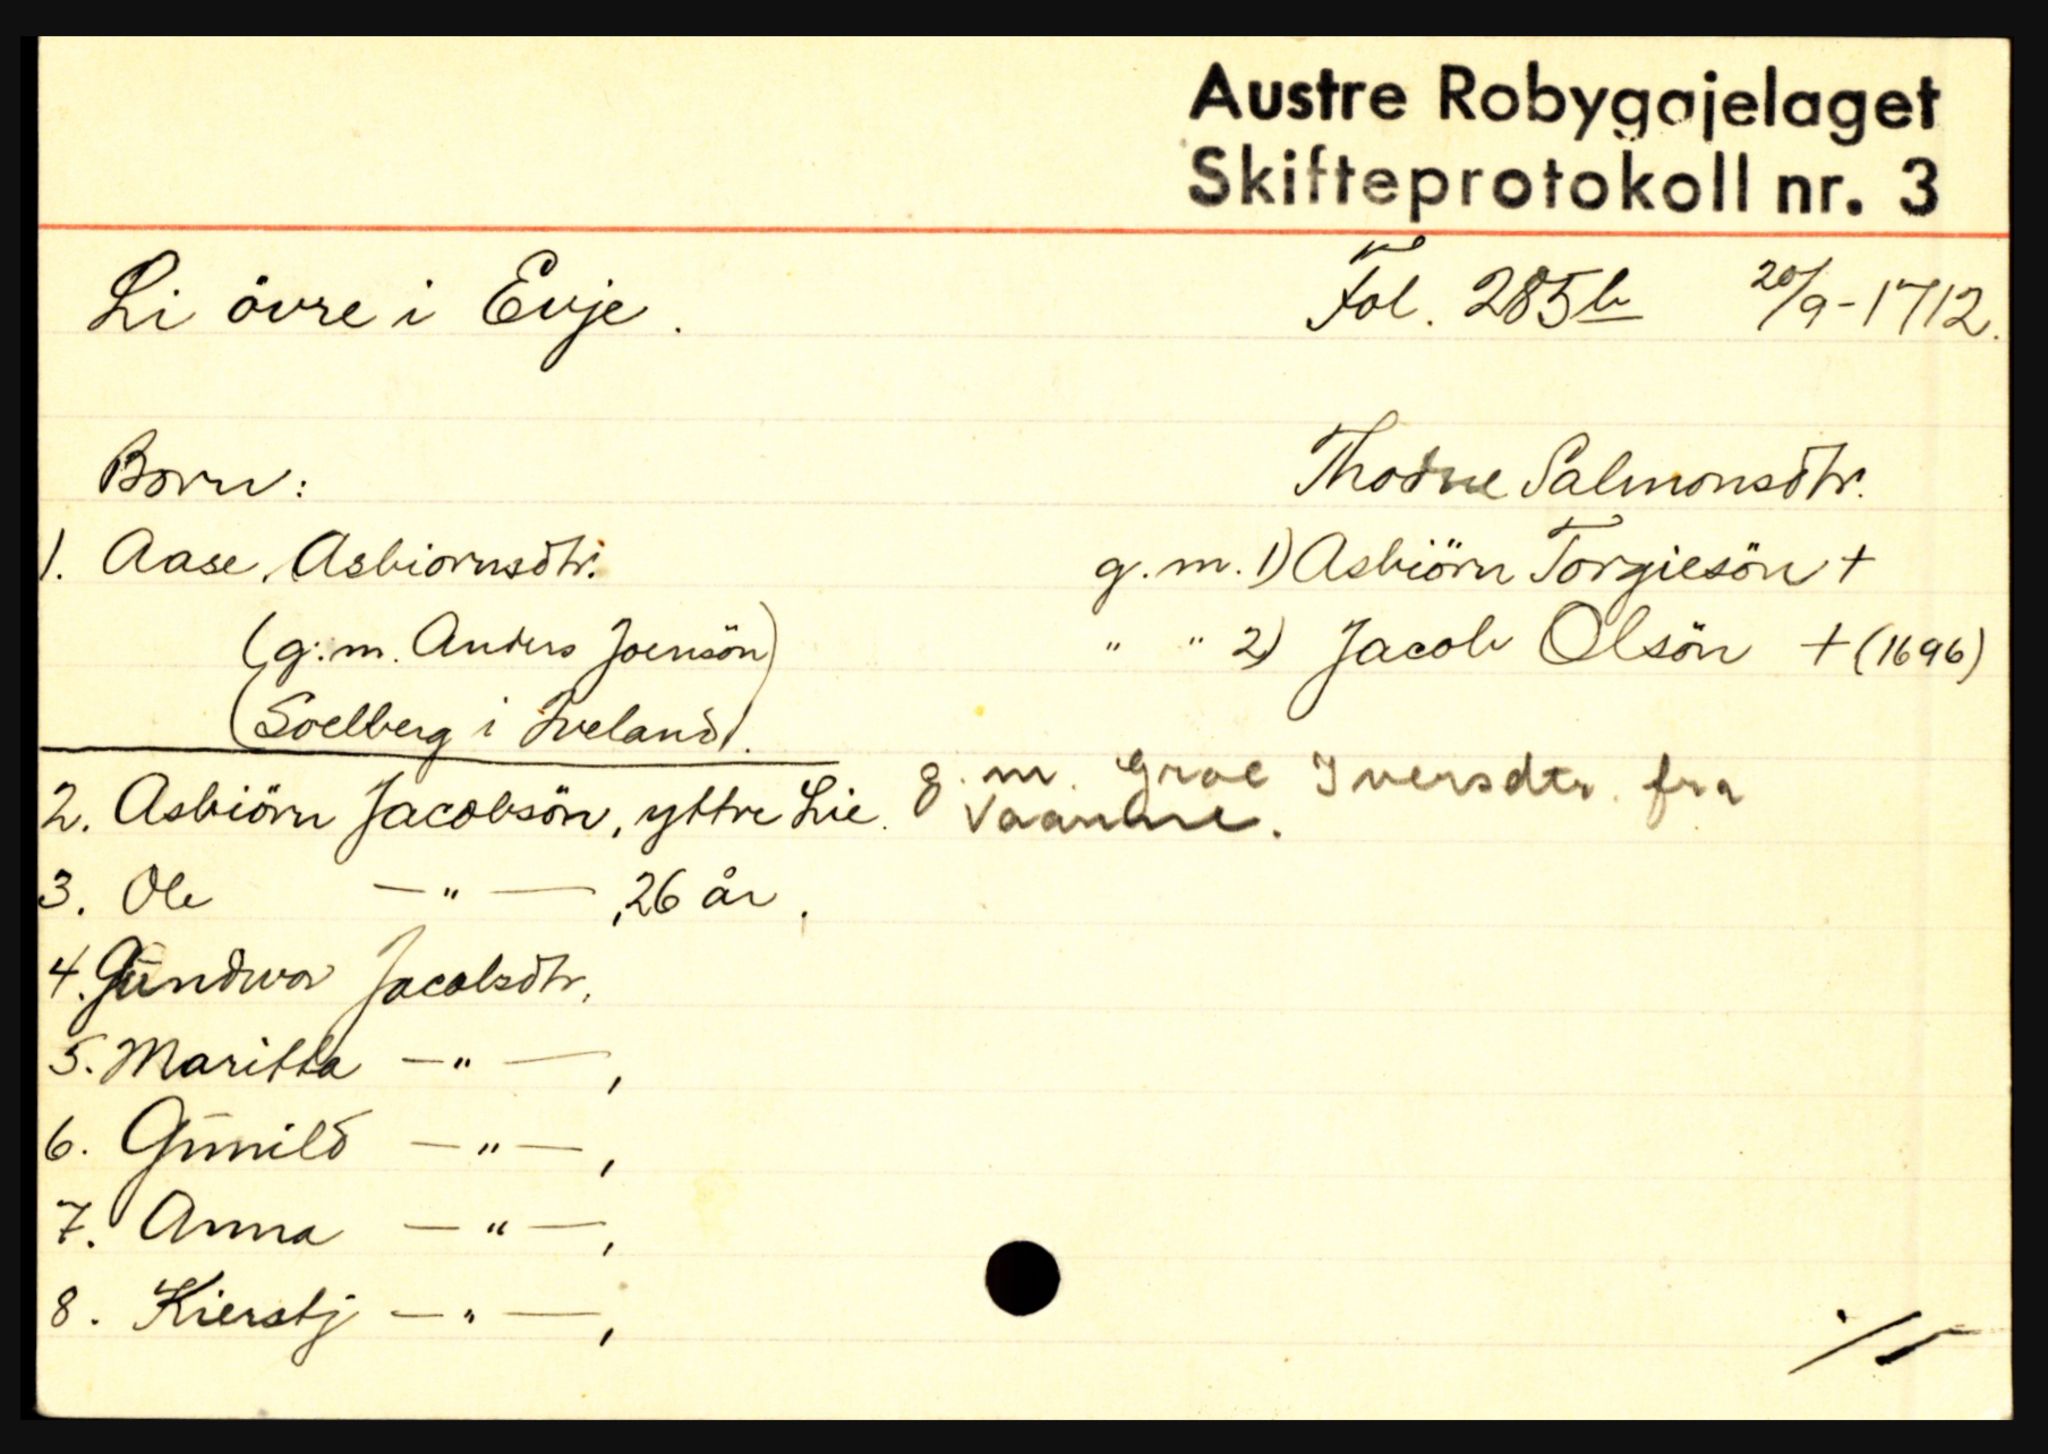 Austre Robygajelaget
Skifteprotokoll nr. 3
Li övre i Evje. Fol. 285b 20/9-1712.
Born: Thodne Salmonsdtr.
1. Aase Asbiornsdtr. g.m. 1) Asbiörn Torgiesön +
(g.m. Anders Joensön) " " 2) Jacob Olsön + (1696)
(Soelberg i Iveland).
2. Asbiörn Jacobsön, yttre Lie. g.m. Groe Iversdtr. fra
Vaanne.
3. Ole —"—, 26 år.
4. Gundvor Jacobsdtr,
5. Maritta —"—,
6. Gunild —"—,
7. Anna —"—,
8. Kierstj —"—,